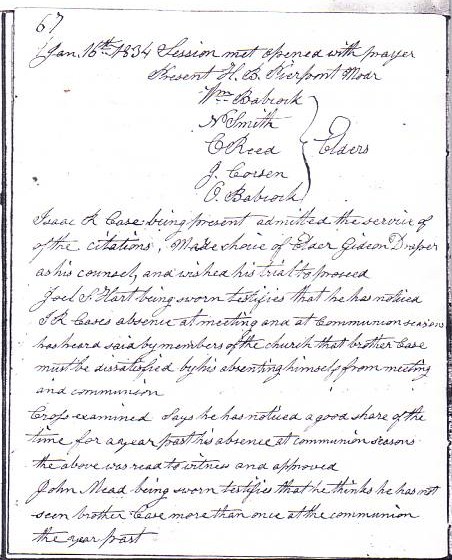 67
Jan. 16th 1834 Session met opened with prayer
Present H. B. Pierpont Modr
Wm Babcock
N Smith
C Reed
J. Corsen
O. Babcock
Elders
Isaac R Case being present admitted the service of
of the citations, Make choice of Elder Gideon Draper
as his counsel, and wished his trial to proceed
Joel S. Hart being sworn testifies that he has noticed
I R Cases absence at meeting and at Communion seasons
has heard said by members of the church that brother Case
must be dissatisfied by his absenting himself from meeting
and communion
Cross examined Says he has noticed a good share of the
time for a year past his absence at communion seasons
the above was read to witness and approved
John Mead being sworn testifies that he thinks he has not
seen brother Case more than once at the communion
the year past